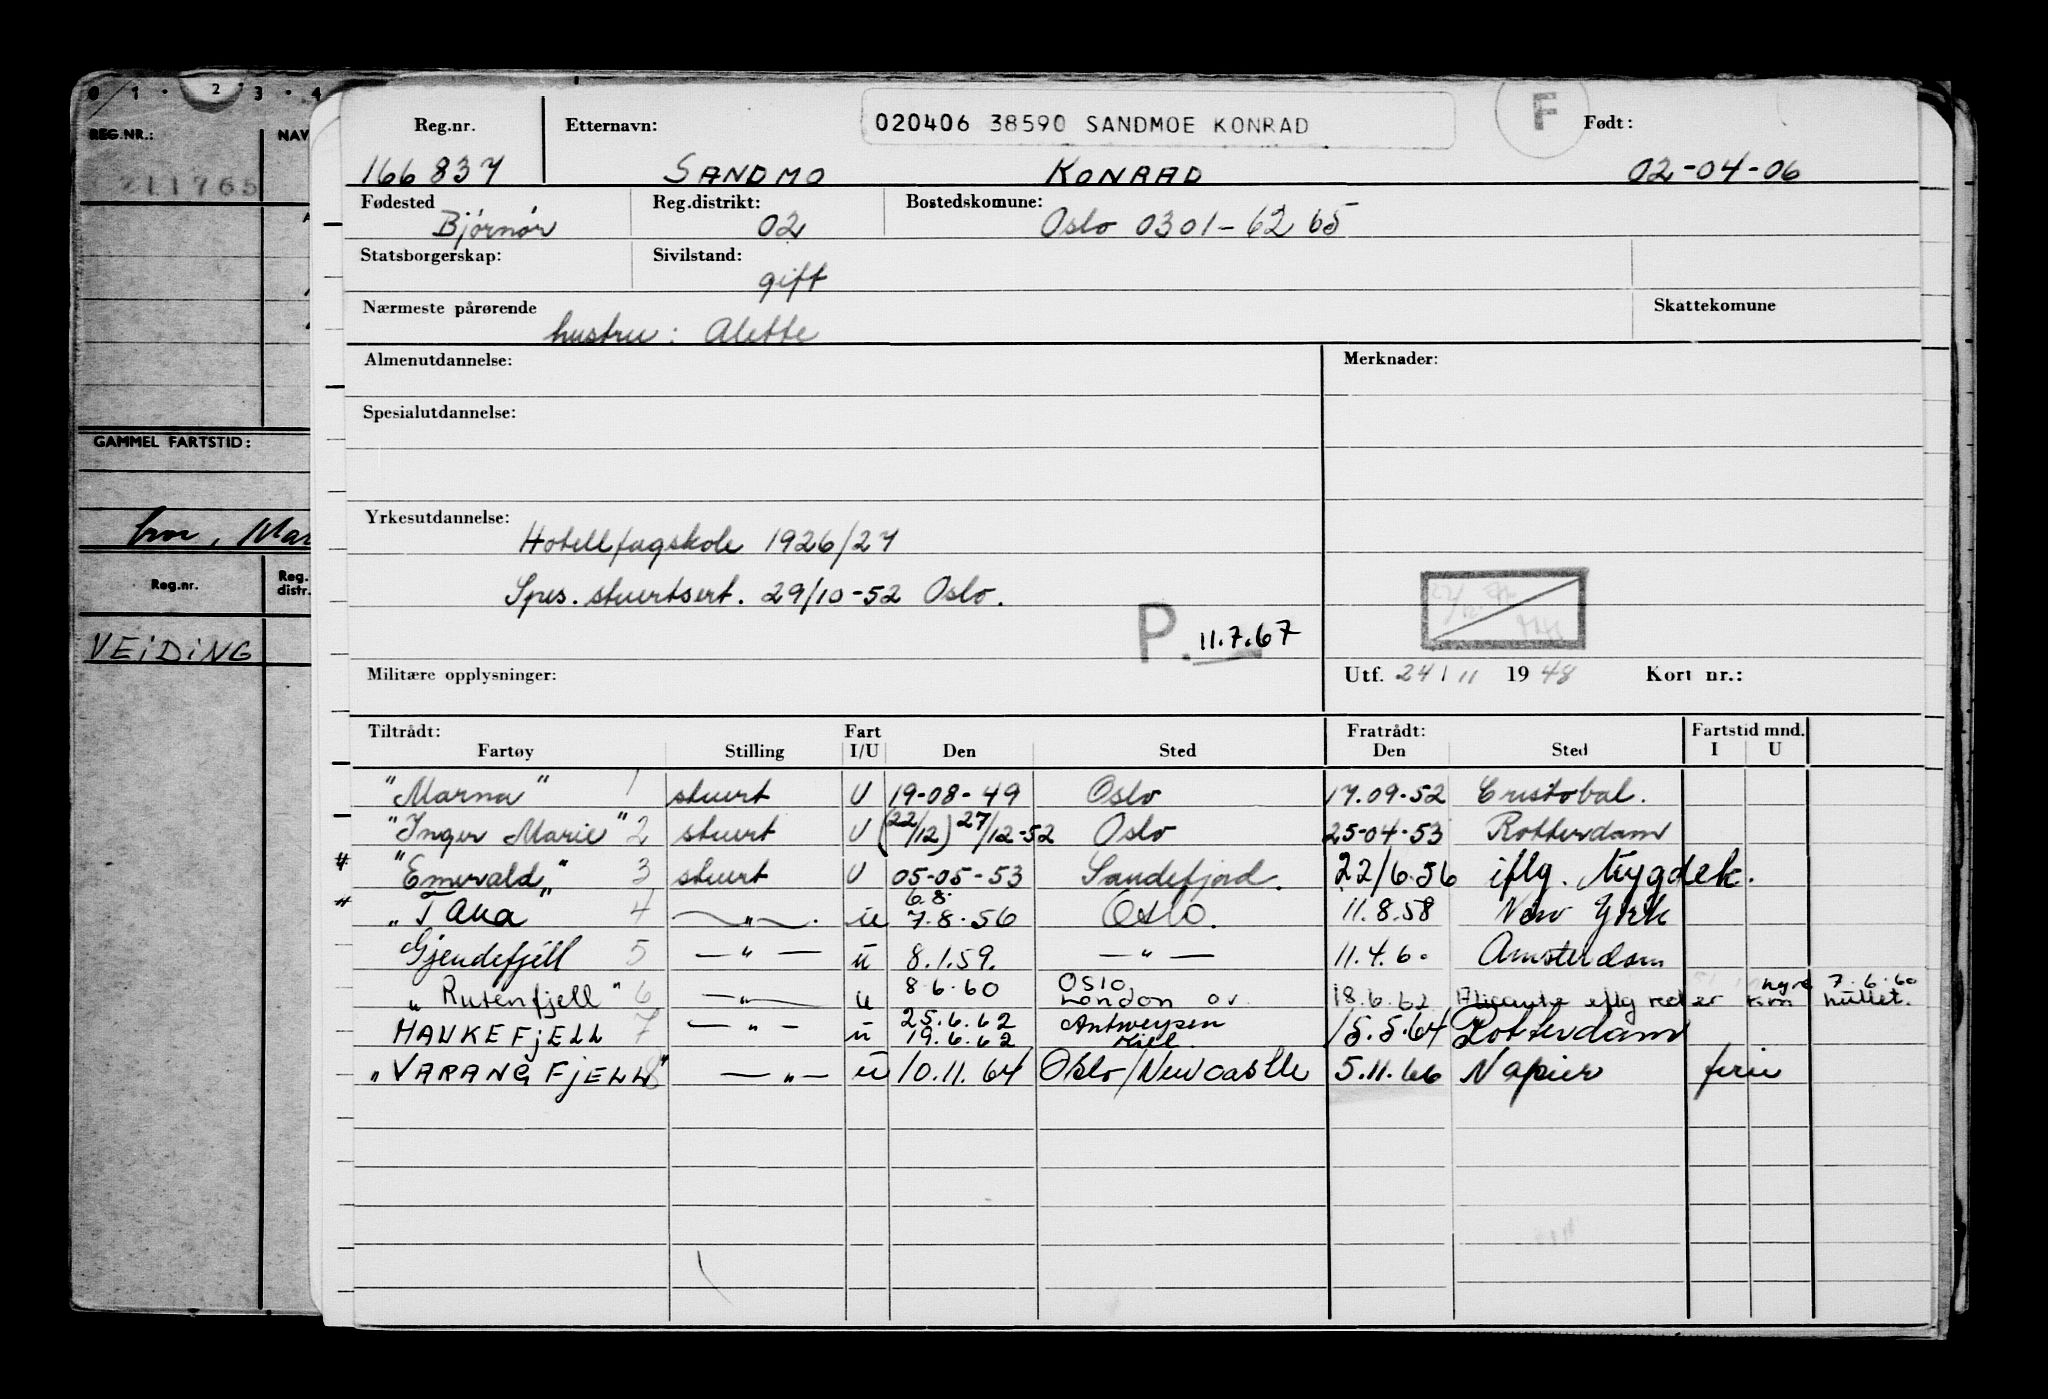 0 1 · 2 3 · 4
REG.NR.: NAV
211765
GAMMEL FARTSTID:
Mar
Reg.nr. Reg. distr.
VEIDING
Reg.nr. Etternavn: 020406 38590 SANDMOE KONRAD F Født:
166837 SANDMO KONRAD 02-04-06
Fødested Reg.distrikt: Bostedskomune:
Bjørnør 02 Oslo 0301-62 65
Statsborgerskap: Sivilstand:
gift
Nærmeste pårørende Skattekomune
hustru: Alette
Almenutdannelse: Merknader:
Spesialutdannelse:
Yrkesutdannelse:
Hotellfagskole 1926/27
Spes. stuertsert. 29/10-52 Oslo.
P. 11.7.67
Militære opplysninger: Utf. 24/11 1948 Kort nr.:
Tiltrådt: Fart Fratrådt: Fartstid mnd.
Fartøy Stilling I/U Den Sted Den Sted I U
"Marna" 1 stuert U 19-08-49 Oslo 17.09-52 Cristobal.
"Inger Marie" 2 stuert U (22/12) 27/12-52 Oslo 25-04-53 Rotterdam
"Emerald" 3 stuert U 05-05-53 Sandefjord. 22/6.56 iflg. Mygdek.
6.8.
"Tana" 4 — " —. u 7.8.56 Oslo. 11.8.58 New York
Gjendefjell 5 — " — u 8.1.59. — " — 11.4.60 Amsterdam
8.6.60 Oslo hyre 7.6.60
"Rutenfjell" 6 — " — u London ov. 18.6.62 Alicante eflg reder kom nullet.
25.6.62 Antwerpen
HAUKEFJELL 7 — " — u 19.6.62 Kiel. 15.5.64 Rotterdam
"VARANGFJELL" 8 — " — u 10.11.64 Oslo/Newcastle 5.11.66 Napier ferie